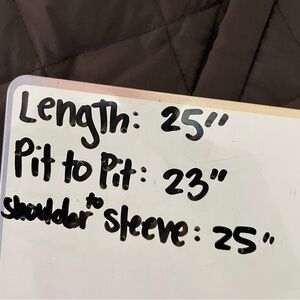 Length: 25"
Pit to Pit: 23"
shoulder to sleeve: 25"